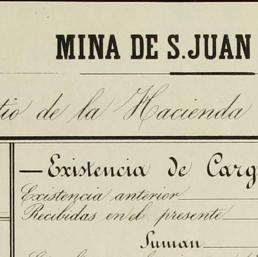 MINA DE S.JUAN
tio de la Hacienda
—Existencia de Carg
Existencia anterior
Recibidas en el presente
Suman